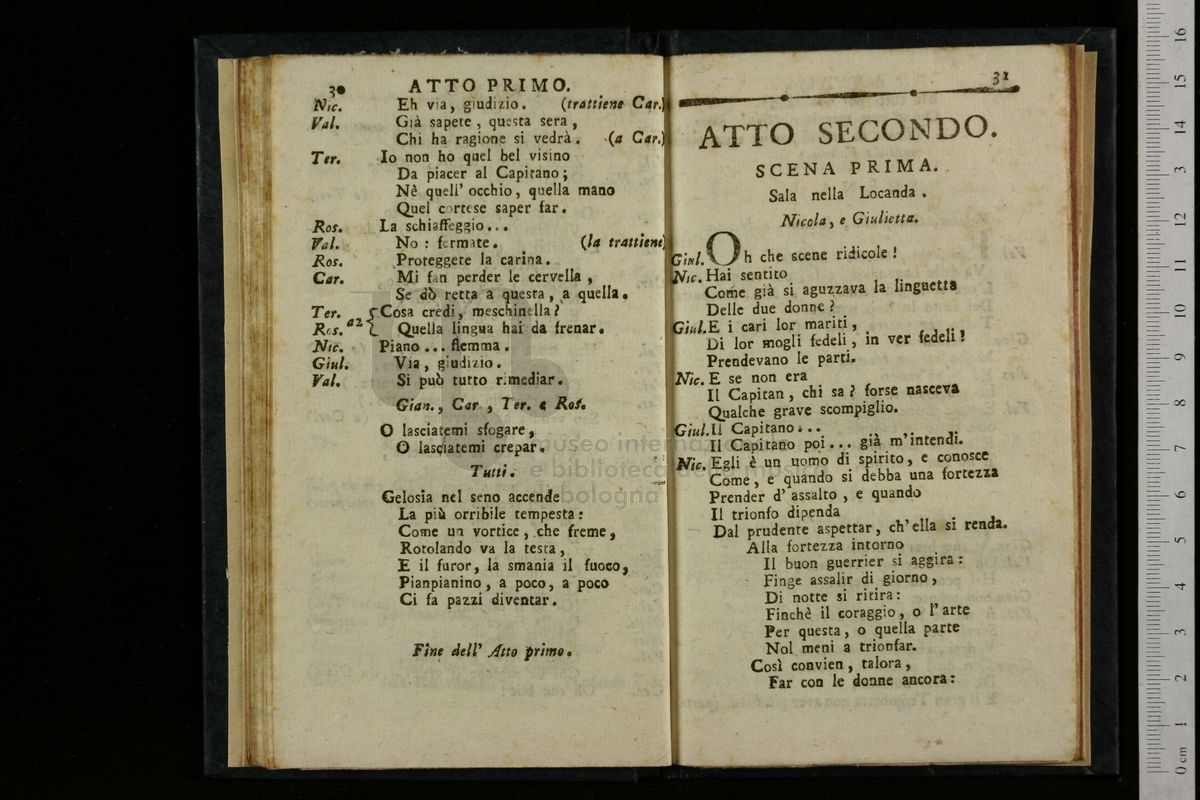 30 ATTO PRIMO.
Nic. Eh via, giudizio. (trattiene Car.)
Val. Già sapete, questa sera,
Chi ha ragione si vedrà. (a Car.)
Ter. Io non ho quel bel visino
Da piacer al Capitano;
Nè quell' occhio, quella mano
Quel cortese saper far.
Ros. La schiaffeggio...
Val. No: fermate. (la trattiene)
Ros. Proteggete la carina.
Car. Mi fan perder le cervella,
Se dò retta a questa, a quella.
Ter. Cosa credi, meschinella?
Ros. a2 { Quella lingua hai da frenar.
Nic. Piano... flemma.
Giul. Via, giudizio.
Val. Si può tutto rimediar.
Gian., Car., Ter. e Ros.
O lasciatemi sfogare,
O lasciatemi crepar.
Tutti.
Gelosia nel seno accende
La più orribile tempesta:
Come un vortice, che freme,
Rotolando va la testa,
E il furor, la smania il fuoco,
Pianpianino, a poco, a poco
Ci fa pazzi diventar.
Fine dell' Atto primo.
31
ATTO SECONDO.
SCENA PRIMA.
Sala nella Locanda.
Nicola, e Giulietta.
Giul. Oh che scene ridicole!
Nic. Hai sentito
Come già si aguzzava la linguetta
Delle due donne?
Giul. E i cari lor mariti,
Di lor mogli fedeli, in ver fedeli!
Prendevano le parti.
Nic. E se non era
Il Capitan, chi sa? forse nasceva
Qualche grave scompiglio.
Giul. Il Capitano...
Il Capitano poi... già m'intendi.
Nic. Egli è un uomo di spirito, e conosce
Come, e quando si debba una fortezza
Prender d' assalto, e quando
Il trionfo dipenda
Dal prudente aspettar, ch'ella si renda.
Alla fortezza intorno
Il buon guerrier si aggira:
Finge assalir di giorno,
Di notte si ritira:
Finchè il coraggio, o l'arte
Per questa, o quella parte
Nol meni a trionfar.
Così convien, talora,
Far con le donne ancora:
museo internazionale
e biblioteca della musica
di bologna
0 cm 1 2 3 4 5 6 7 8 9 10 11 12 13 14 15 16